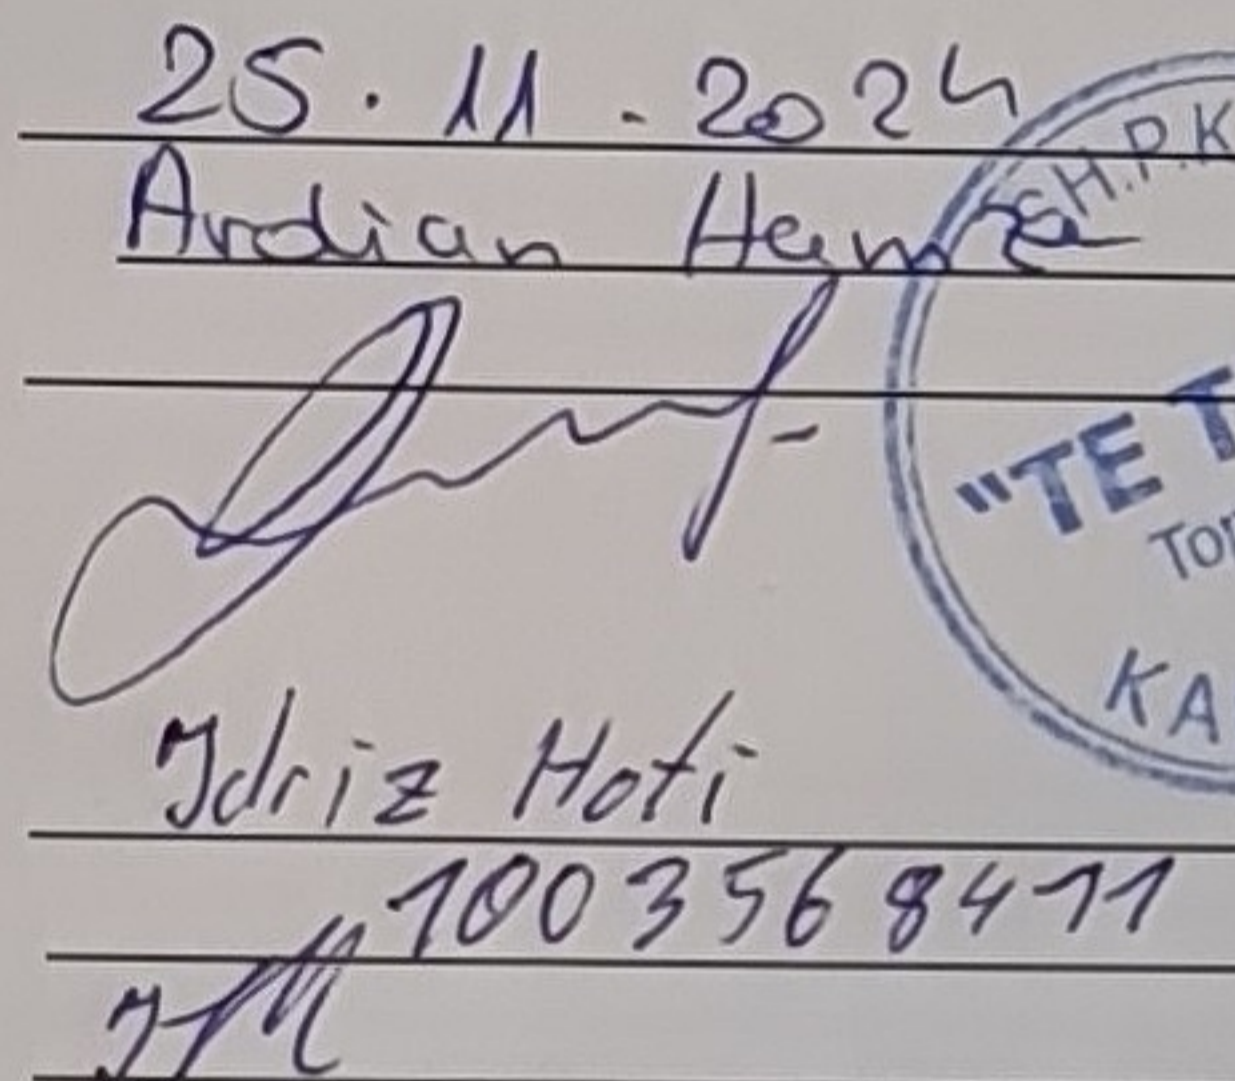 25.11.2024
SH.P.K
Ardian Hamza
"TE T
Tor
KA
Idriz Hoti
1003568411